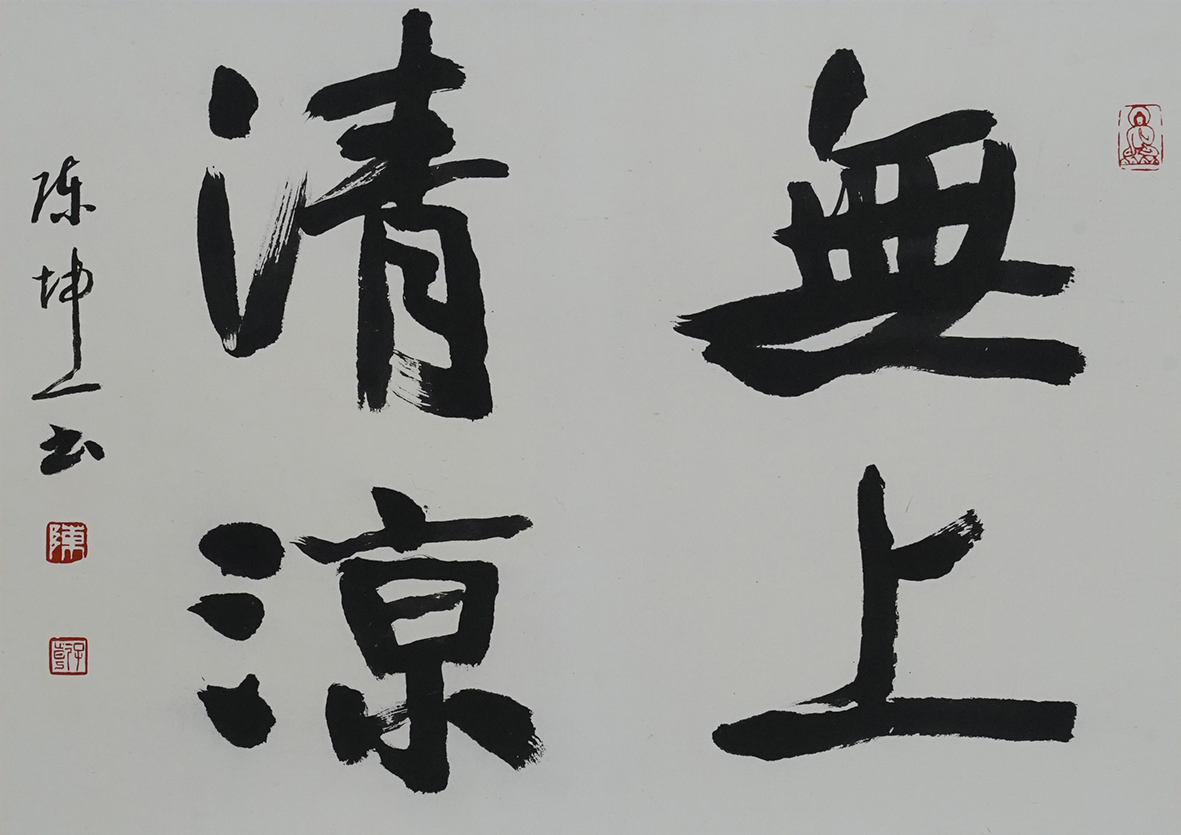 無上
清涼
陈坤上书
陳